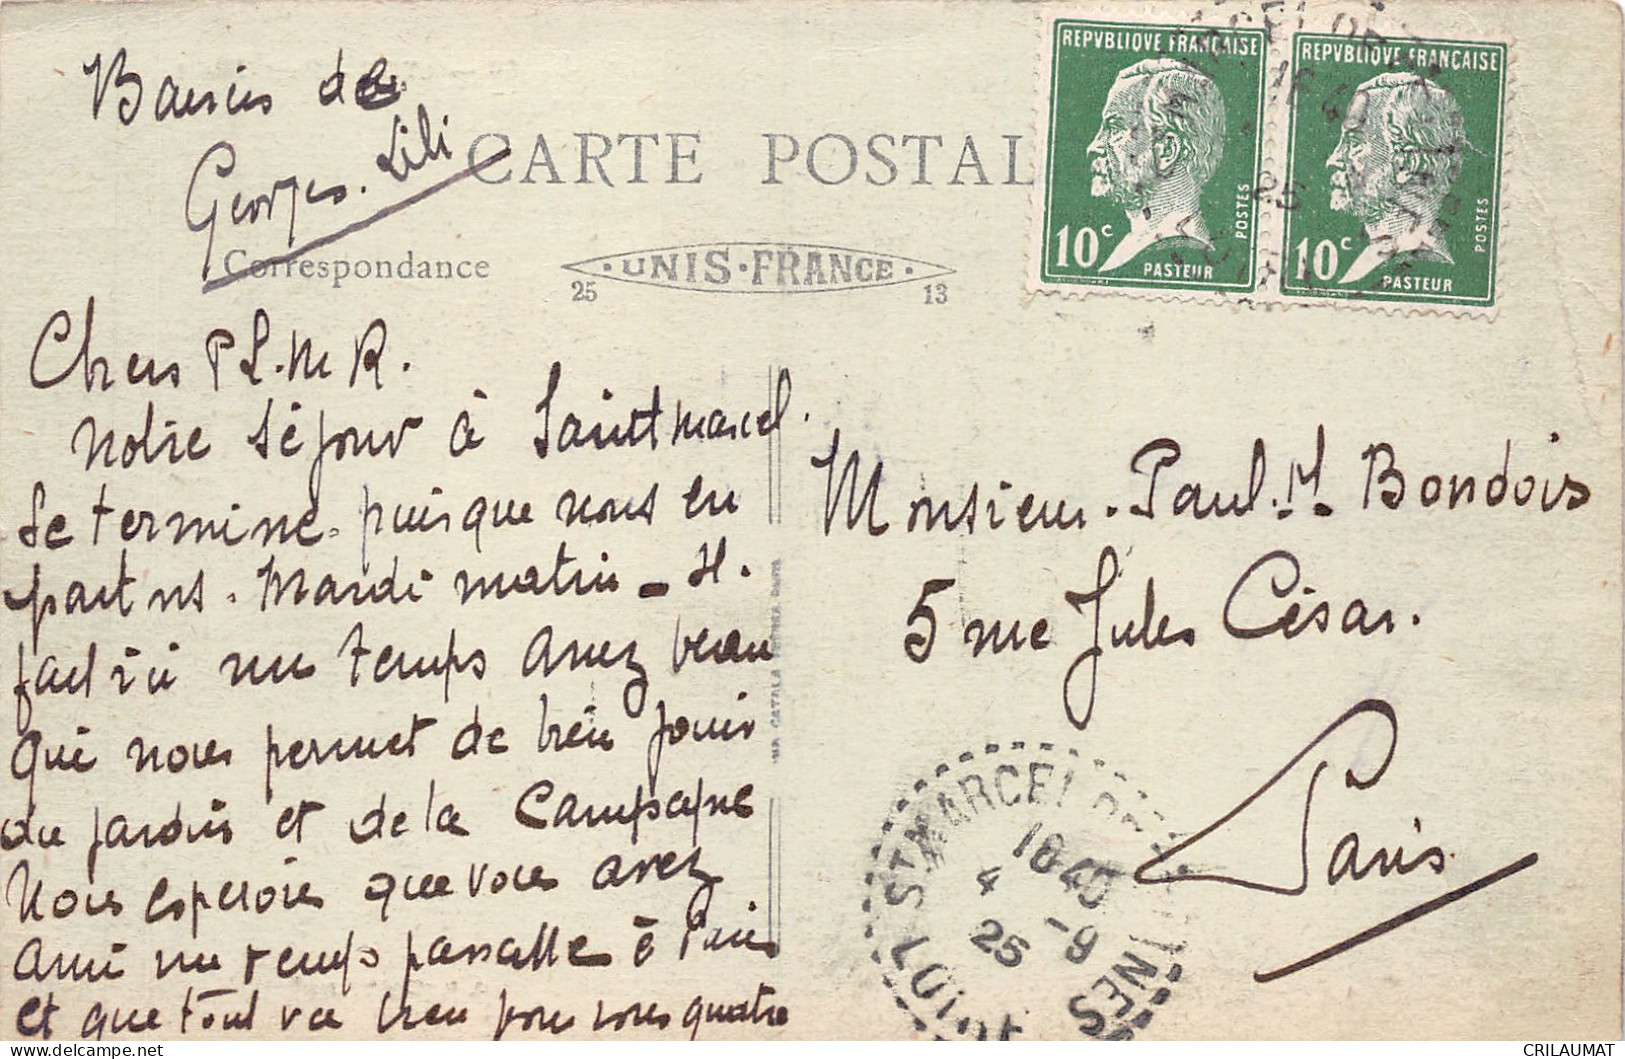 Baisers de
Georges. Lili
CARTE POSTAL
Correspondance
UNIS-FRANCE
25 13
REPVBLIQVE FRANÇAISE
10c
POSTES
PASTEUR
REPVBLIQVE FRANÇAISE
10c
POSTES
PASTEUR
16 40
25
Chers P L. M R.
Notre séjour à Saint Marcel.
se termine puisque nous en
partns. Mardi matin - Il.
fait ici un temps assez beau
qui nous permet de bien jouir
du jardin et de la campagne
Nous espérons que vous avez
aussi un temps passable à Paris
et que tout va bien pour vous quatre
Monsieur. Paul. M. Bondois
5 rue Jules César.
Paris
ST MARCEL
1640
4 -9
25
CRILAUMAT